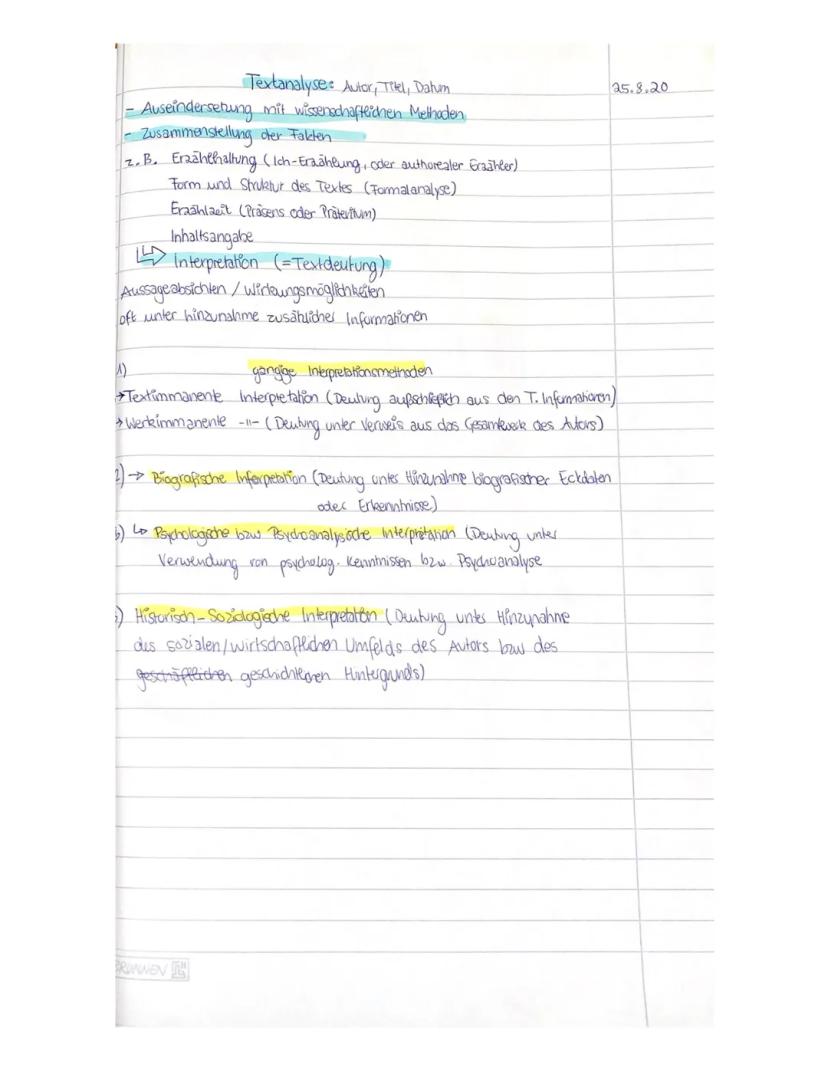 Textanalyse: Autor, Titel, Datum 25.8.20
- Auseindersetzung mit wissenschaftlichen Methoden
- Zusammenstellung der Fakten
z.B. Erzählhaltung (Ich-Erzählung, oder authorealer Erzähler)
Form und Struktur des Textes (Formalanalyse)
Erzählzeit (Präsens oder Präteritum)
Inhaltsangabe
↳ Interpretation (=Textdeutung)
Aussageabsichten / Wirkungsmöglichkeiten
oft unter hinzunahme zusätzlicher Informationen
1) gängige Interpretationsmethoden
→ Textimmanente Interpretation (Deutung außschließlich aus den T. Informationen)
→ Werkimmanente -11- (Deutung unter Verweis aus das Gesamtwerk des Autors)
2) → Biografische Interpretation (Deutung unter Hinzunahme biografischer Eckdaten
oder Erkenntnisse)
b) ↳ Psychologische bzw Psychoanalysische Interpretation (Deutung unter
Verwendung von psycholog. Kenntnissen bzw. Psychoanalyse
) Historisch-Soziologische Interpretation (Deutung unter Hinzunahme
des sozialen/wirtschaftlichen Umfelds des Autors bzw des
geschäftlichen geschichtlichen Hintergrunds)
BRUNNEN